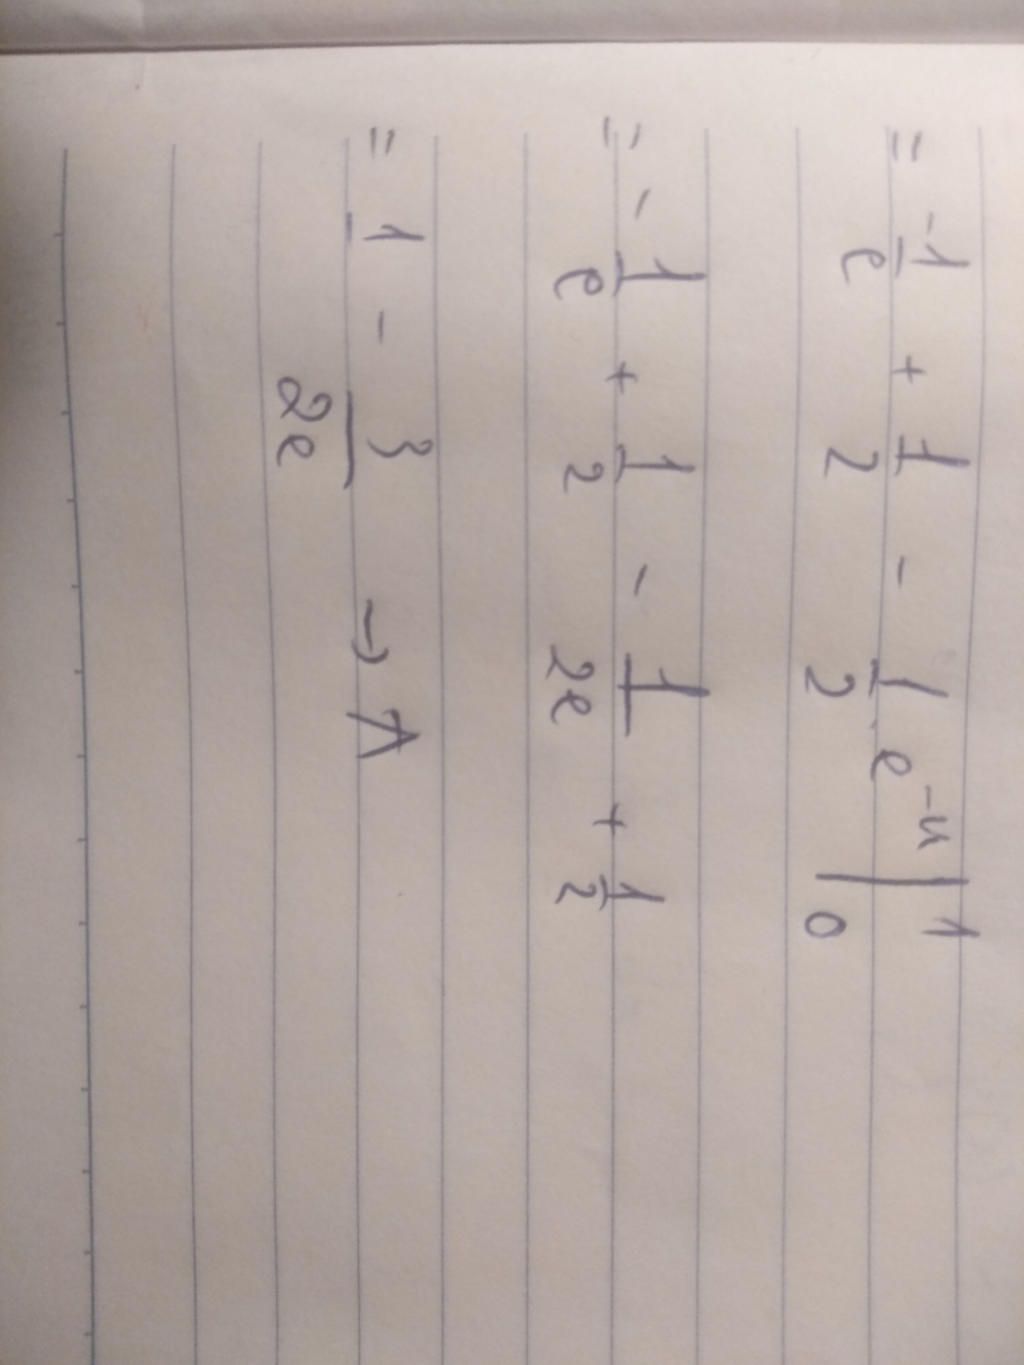 = -1/e + 1/2 - 1/2 · e^-u |_0^1
= - 1/e + 1/2 - 1/2e + 1/2
= 1 - 3/2e → Λ